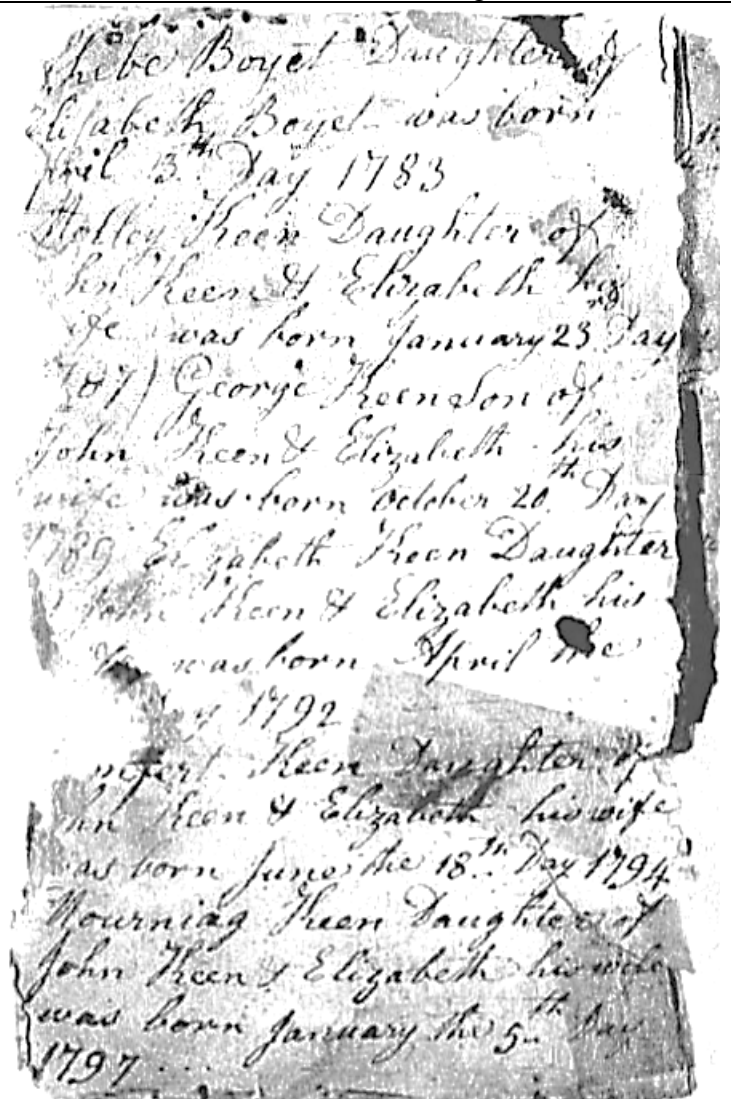 hebe Boyet Daughter of
Elisabeth Boyet was born
April 13th Day 1783
Holley Keen Daughter of
hn Keen & Elizabeth his
ife was born January 23rd Day
1787) George Keen Son of
John Keen & Elizabeth his
wife was born October 20th Day
1789 Elizabeth Keen Daughter
John Keen & Elizabeth his
was born April the
y 1792
mfert Keen Daughter of
hn Keen & Elizabeth his wife
as born June the 18th Day 1794
Mourning Keen Daughter of
John Keen & Elizabeth his wife
was born January the 5th Day
1797